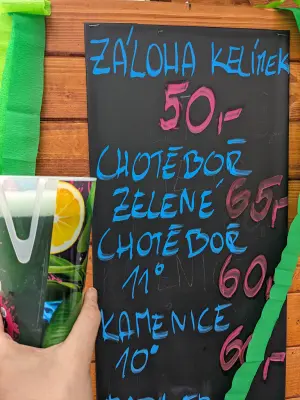 ZÁLOHA KELÍMEK
50,-
CHOTĚBOŘ
ZELENÉ 65,-
CHOTĚBOŘ
11° 60,-
KAMENICE
10°